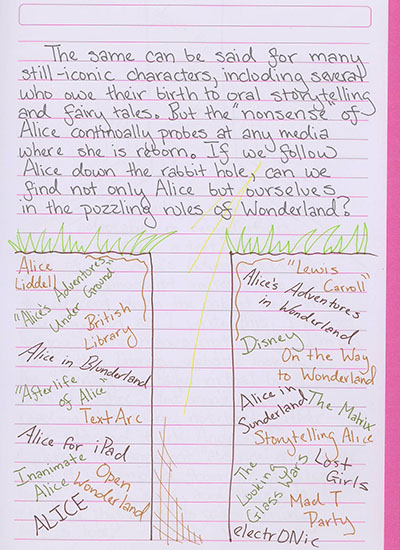 The same can be said for many
still-iconic characters, including several
who owe their birth to oral storytelling
and fairy tales. But the "nonsense" of
Alice continually probes at any media
where she is reborn. If we follow
Alice down the rabbit hole, can we
find not only Alice but ourselves
in the puzzling rules of Wonderland?
Alice
Liddell
"Alice's Adventures
Under Ground"
British
Library
Alice in Blunderland
"Afterlife
of Alice"
TextArc
Alice for iPad
Inanimate
Alice
Open
Wonderland
ALICE
"Lewis
Carroll"
Alice's Adventures
in Wonderland
Disney
On the Way
to Wonderland
Alice in
Sunderland
The Matrix
Storytelling Alice
The
Looking
Glass Wars
Lost
Girls
Mad T
Party
electrONic